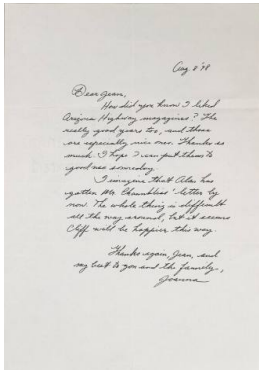 Aug 2 '98
Dear Jean,
How did you know I liked
Arizona Highway magazines? The
really good years too, and these
are especially nice ones. Thanks so
much. I hope I can put them to
good use someday.
I imagine that Alan has
gotten Mr. Chambless' letter by
now. The whole thing is difficult
all the way around, but it seems
Cliff will be happier this way.
Thanks again, Jean, and
my best to you and the family,
Joanna